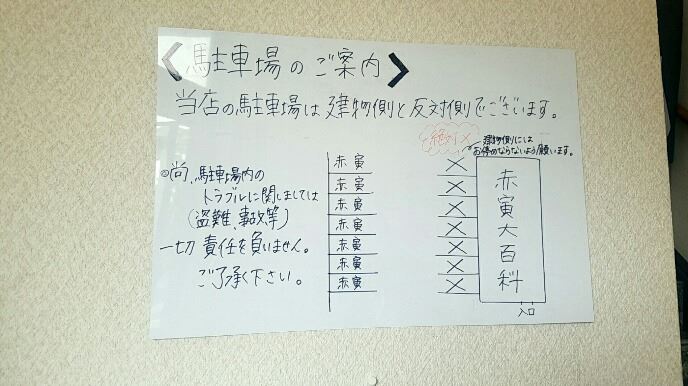 〈駐車場のご案内〉
当店の駐車場は建物側と反対側でございます。
絶対×
建物側にには
お停めならないよう願います。
◎尚、駐車場内の
トラブルに関しましては
(盗難、事故等)
一切責任を負いません。
ご了承く下さい。
赤寅
赤寅
赤寅
赤寅
赤寅
赤寅
赤寅
×
×
×
×
×
×
×
赤寅大百科
入口